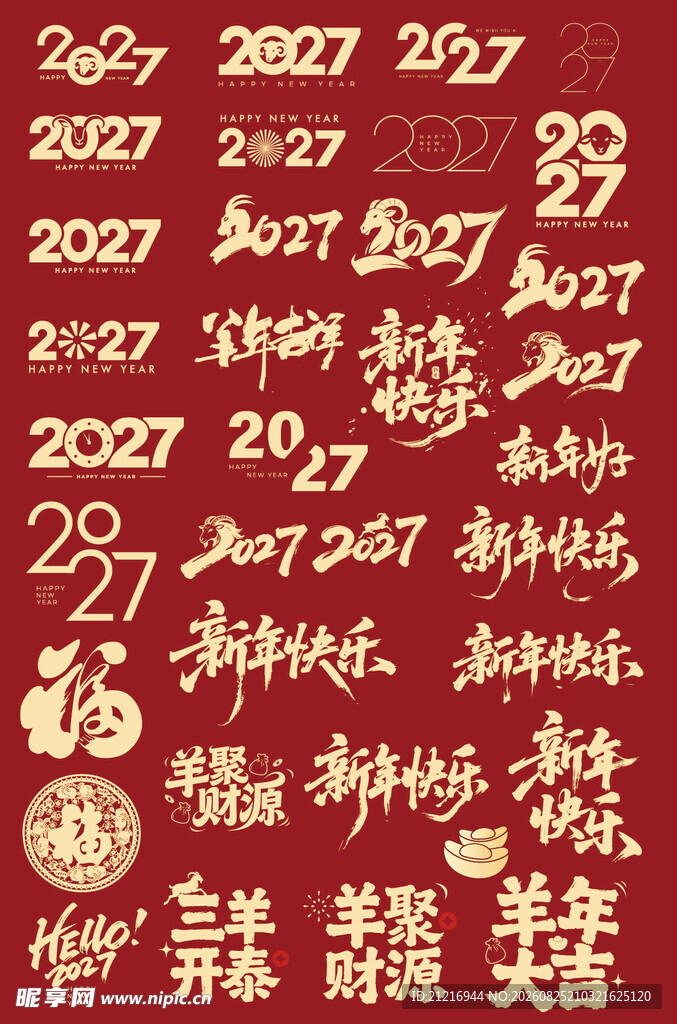 2027
HAPPY NEW YEAR
2027
HAPPY NEW YEAR
2027
WE WISH YOU A
HAPPY NEW YEAR
2027
HAPPY NEW YEAR
2027
HAPPY NEW YEAR
HAPPY NEW YEAR
2027
2027
HAPPY
NEW
YEAR
20
27
HAPPY NEW YEAR
2027
HAPPY NEW YEAR
2027
2027
2027
2027
HAPPY NEW YEAR
羊年吉祥
新年
快乐
2027
2027
HAPPY NEW YEAR
20
27
HAPPY
NEW YEAR
新年好
20
27
HAPPY
NEW
YEAR
2027
2027
新年快乐
新年快乐
新年快乐
福
羊聚
财源
新年快乐
新年
快乐
福
HELLO!
2027
三羊
开泰
羊聚
财源
羊年
大吉
昵享网 www.nipic.cn
ID:21216944 NO:20260825210321625120